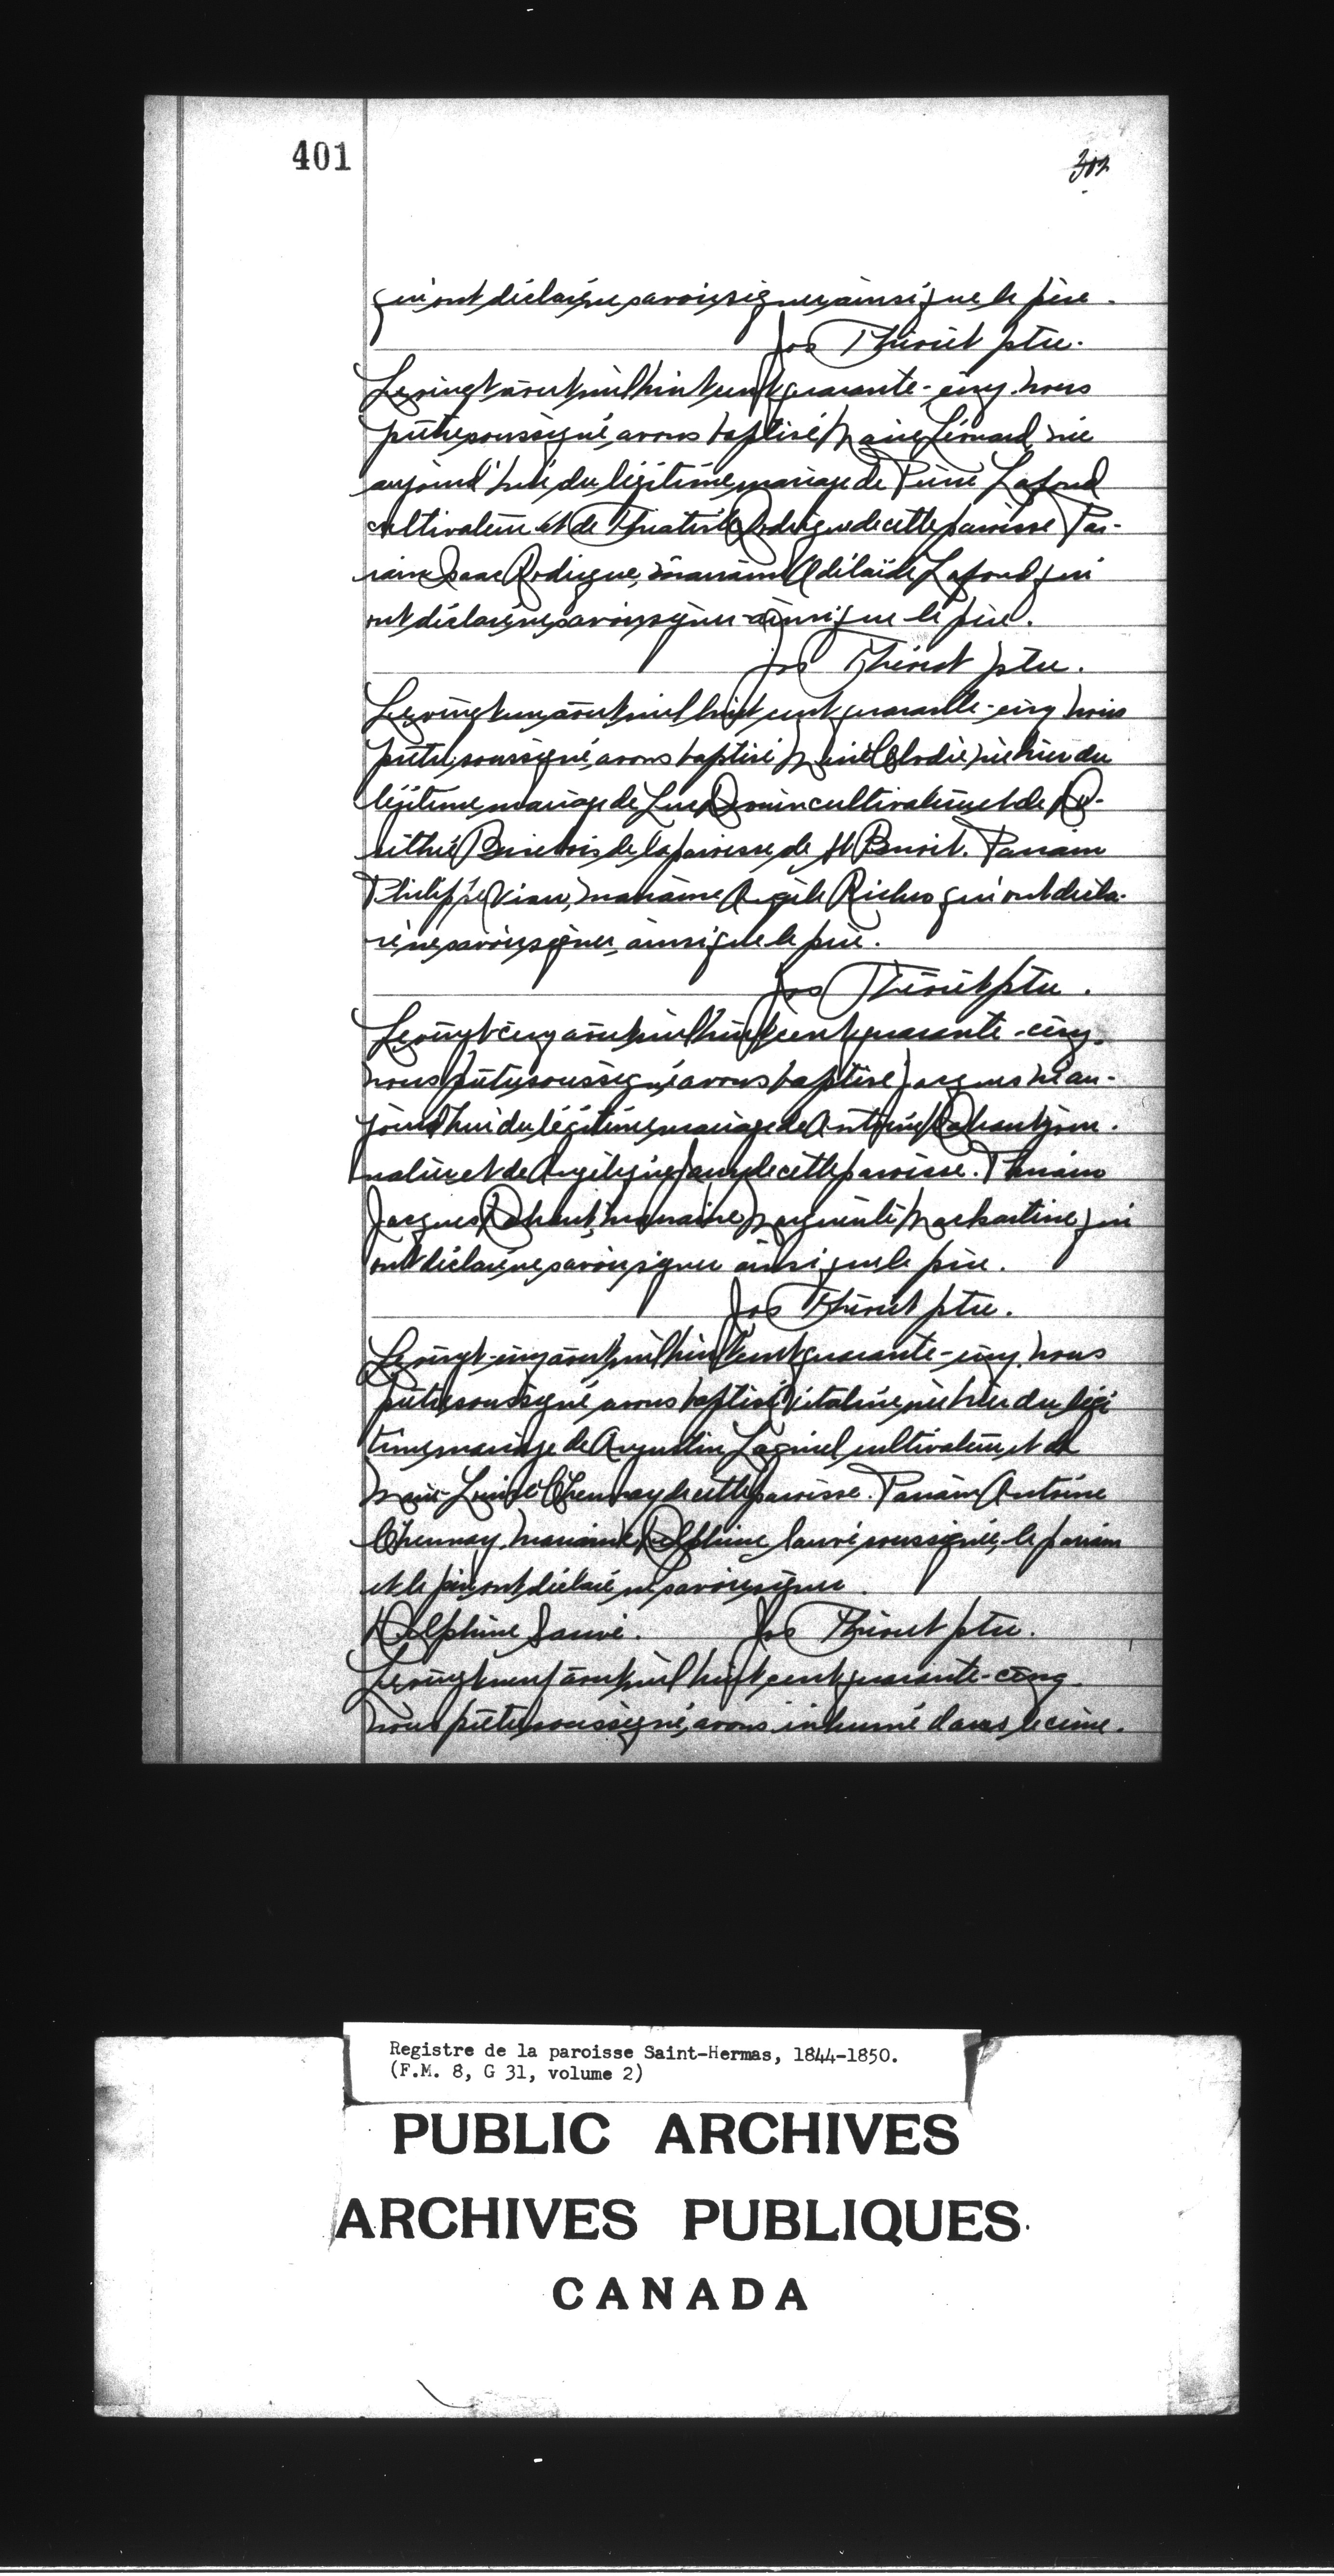 401
302
qui ont déclaré ne savoir signer ainsi que le père.
Jos Théoret ptre.
Le vingt août mil huit cent quarante-cinq. nous
prêtre soussigné, avons baptisé Marie Léonard, née
aujourd'hui du légitime mariage de Pierre Lafond
cultivateur et de Rodrigue de cette paroisse Par-
rain Isaac Rodrigue, marraine Adélaïde Lafond qui
ont déclaré ne savoir signer ainsi que le père.
Jos Théoret ptre.
Le vingt un août mil huit cent quarante-cinq nous
prêtre soussigné, avons baptisé Marie Elodie, née hier du
légitime mariage de Luc Drouin cultivateur et de Do-
sithée Boisbois de la paroisse de St Benoit. Parrain
Philippe Viau, marraine Angèle Richer qui ont décla-
ré ne savoir signer, ainsi que le père.
Jos Théoret ptre.
Le vingt cinq août mil huit cent quarante-cinq.
nous prêtre soussigné avons baptisé Jacques né au-
jourd'hui du légitime mariage de Antoine jour-
nalier et de Angélique de cette paroisse. Parrain
Jacques marraine Marguerite qui
ont déclaré ne savoir signer ainsi que le père.
Jos Théoret ptre.
Le vingt-cinq août mil huit cent quarante-cinq. nous
prêtre soussigné, avons baptisé Vitaline, née hier du légi
time mariage de Augustin cultivateur et de
Marie-Louise Chennay de cette paroisse. Parrain Antoine
Chennay. marraine Delphine Sauvé soussignée, le parrain
et le père ont déclaré ne savoir signer.
Delphine Sauvé. Jos Théoret ptre.
Le vingt neuf août mil huit cent quarante-cinq
nous prêtre soussigné, avons inhumé dans le cime.
Registre de la paroisse Saint-Hermas, 1844-1850.
(F.M. 8, G 31, volume 2)
PUBLIC ARCHIVES
ARCHIVES PUBLIQUES
CANADA